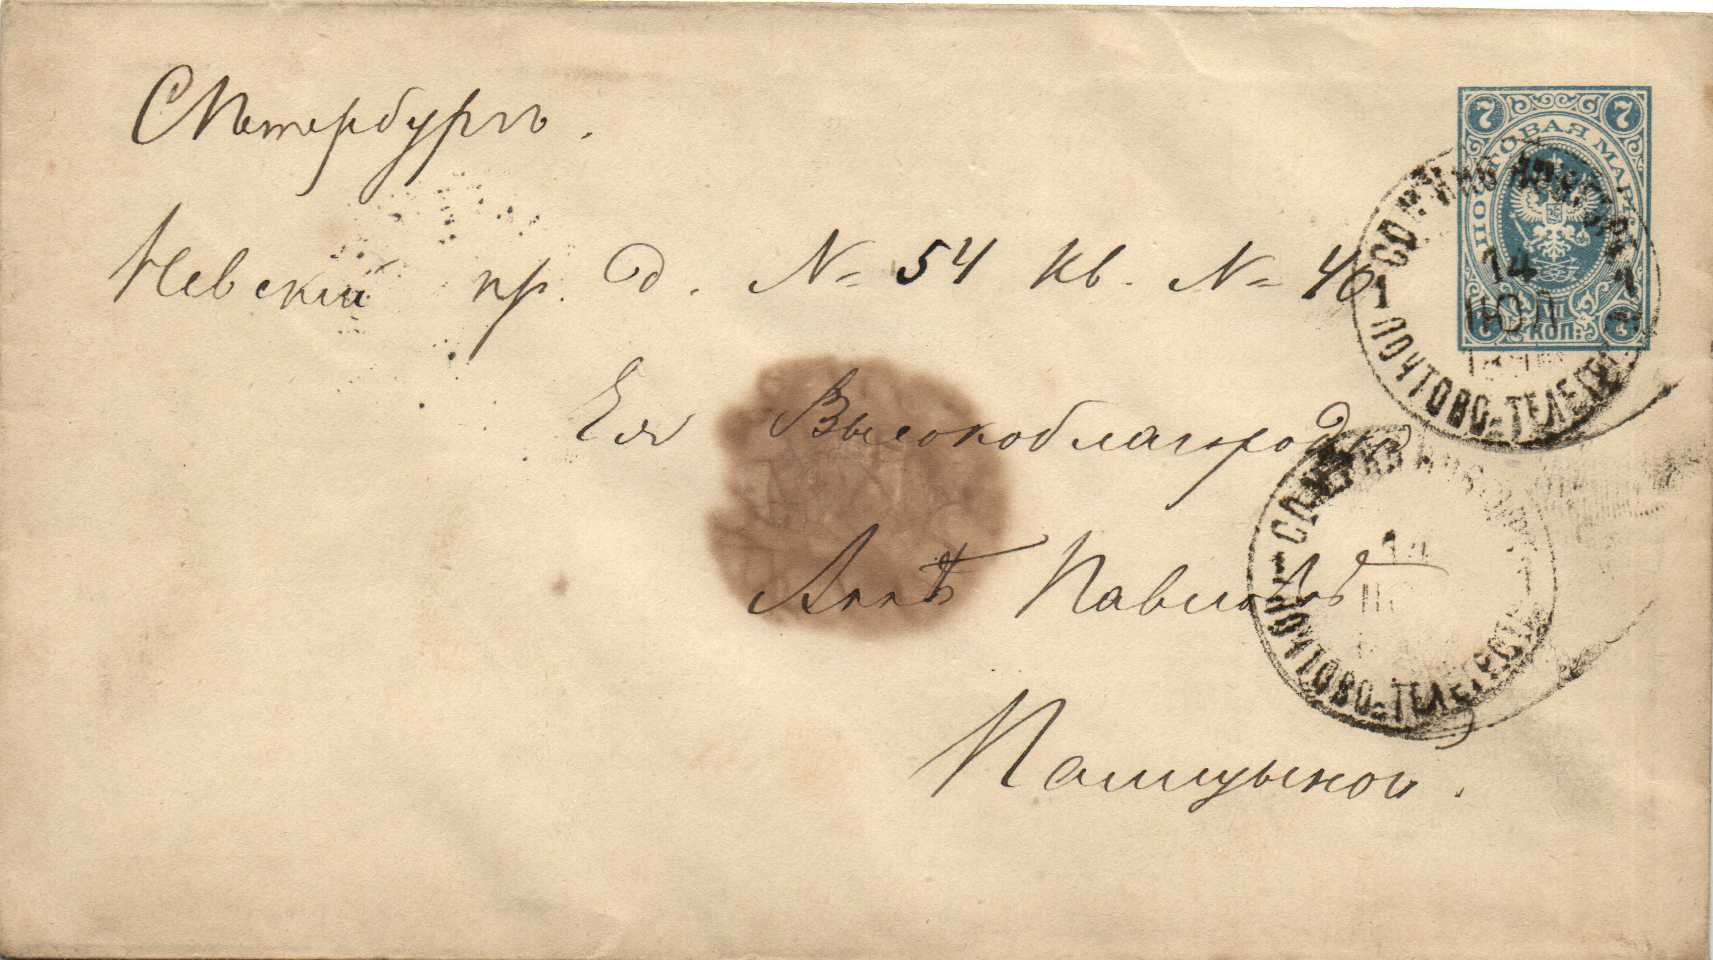 СПетербургъ.
Невскій пр. д. № 54 кв. № 46
Ея Высокоблагородію
Аннѣ Павловнѣ
Палицыной.
7 7
ПОЧТОВАЯ МАРКА
7 КОП. 7
1 ПОЧТОВО-ТЕЛЕГР 1
14
ІЮЛ
ПОЧТОВО-ТЕЛЕГР
14